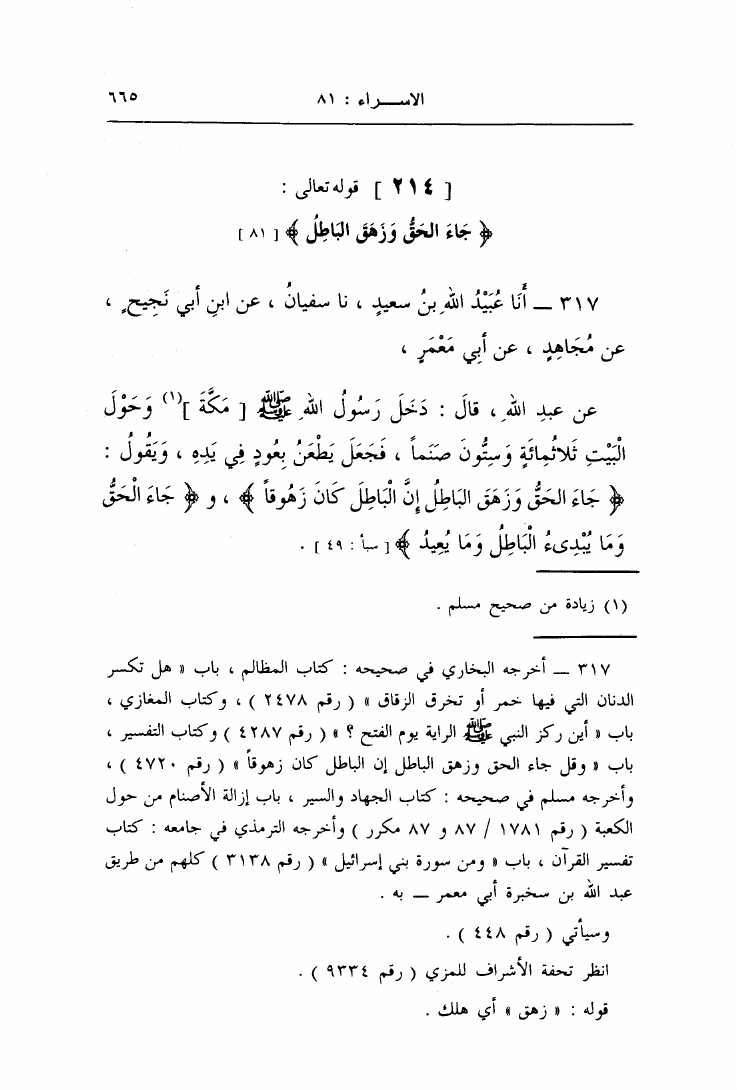 الاسـراء : ٨١ ٦٦٥
[ ٢١٤ ] قوله تعالى :
﴿ جَاءَ الحَقُّ وَزَهَقَ البَاطِلُ ﴾ [ ٨١ ]
٣١٧ ــ أَنَا عُبَيْدُ اللهِ بنُ سعيدٍ ، نا سفيانُ ، عن ابنِ أبي نَجِيحٍ ،
عن مُجَاهِدٍ ، عن أَبِي مَعْمَرٍ ،
عن عبدِ اللهِ ، قالَ : دَخَلَ رَسُولُ اللهِ ﷺ [ مَكَّةَ ](١) وَحَوْلَ
الْبَيْتِ ثَلاثُمِائَةٍ وَسِتُّونَ صَنَماً ، فَجَعَلَ يَطْعَنُ بِعُودٍ فِي يَدِهِ ، وَيَقُولُ :
﴿ جَاءَ الحَقُّ وَزَهَقَ البَاطِلُ إِنَّ الْبَاطِلَ كَانَ زَهُوقاً ﴾ ، و ﴿ جَاءَ الْحَقُّ
وَمَا يُبْدِىءُ الْبَاطِلُ وَمَا يُعِيدُ ﴾ [ سبأ : ٤٩ ] .
(١) زيادة من صحيح مسلم .
٣١٧ ــ أخرجه البخاري في صحيحه : كتاب المظالم ، باب « هل تكسر
الدنان التي فيها خمر أو تخرق الزقاق » ( رقم ٢٤٧٨ ) ، وكتاب المغازي ،
باب « أين ركز النبي ﷺ الراية يوم الفتح ؟ » ( رقم ٤٢٨٧ ) وكتاب التفسير ،
باب « وقل جاء الحق وزهق الباطل إن الباطل كان زهوقاً » ( رقم ٤٧٢٠ ) ،
وأخرجه مسلم في صحيحه : كتاب الجهاد والسير ، باب إزالة الأصنام من حول
الكعبة ( رقم ١٧٨١ / ٨٧ و ٨٧ مكرر ) وأخرجه الترمذي في جامعه : كتاب
تفسير القرآن ، باب « ومن سورة بني إسرائيل » ( رقم ٣١٣٨ ) كلهم من طريق
عبد الله بن سخبرة أبي معمر ــ به .
وسيأتي ( رقم ٤٤٨ ) .
انظر تحفة الأشراف للمزي ( رقم ٩٣٣٤ ) .
قوله : « زهق » أي هلك .